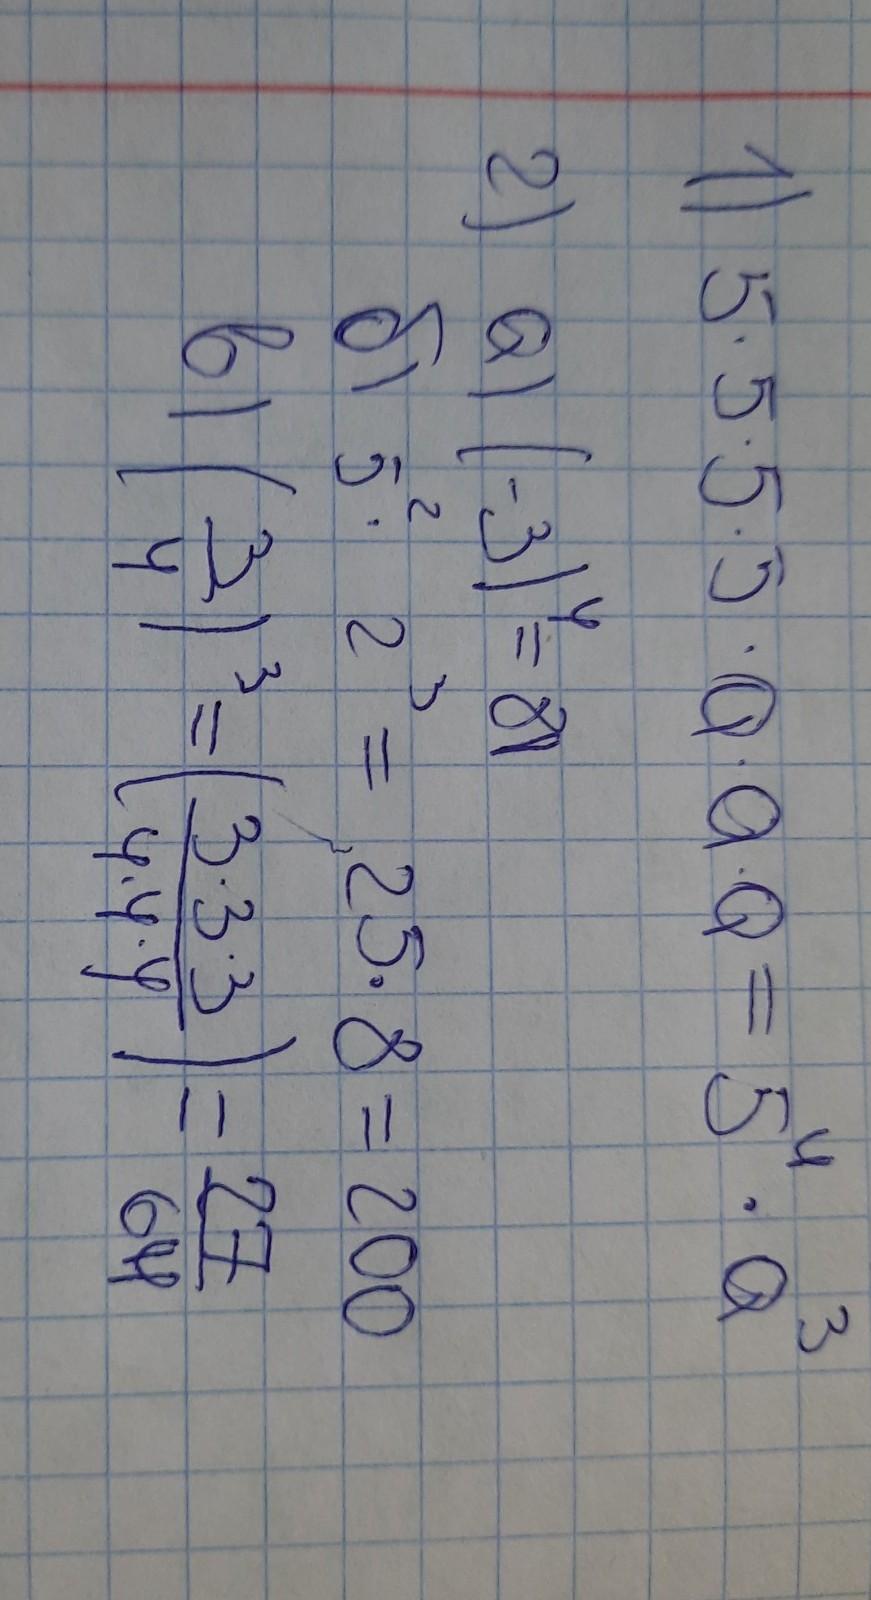 1) 5·5·5·5·a·a·a = 5⁴·a³
2) а) (-3)⁴ = 81
б) 5²· 2³ = 25·8 = 200
в) (3/4)³ = (3·3·3/4·4·4) = 27/64